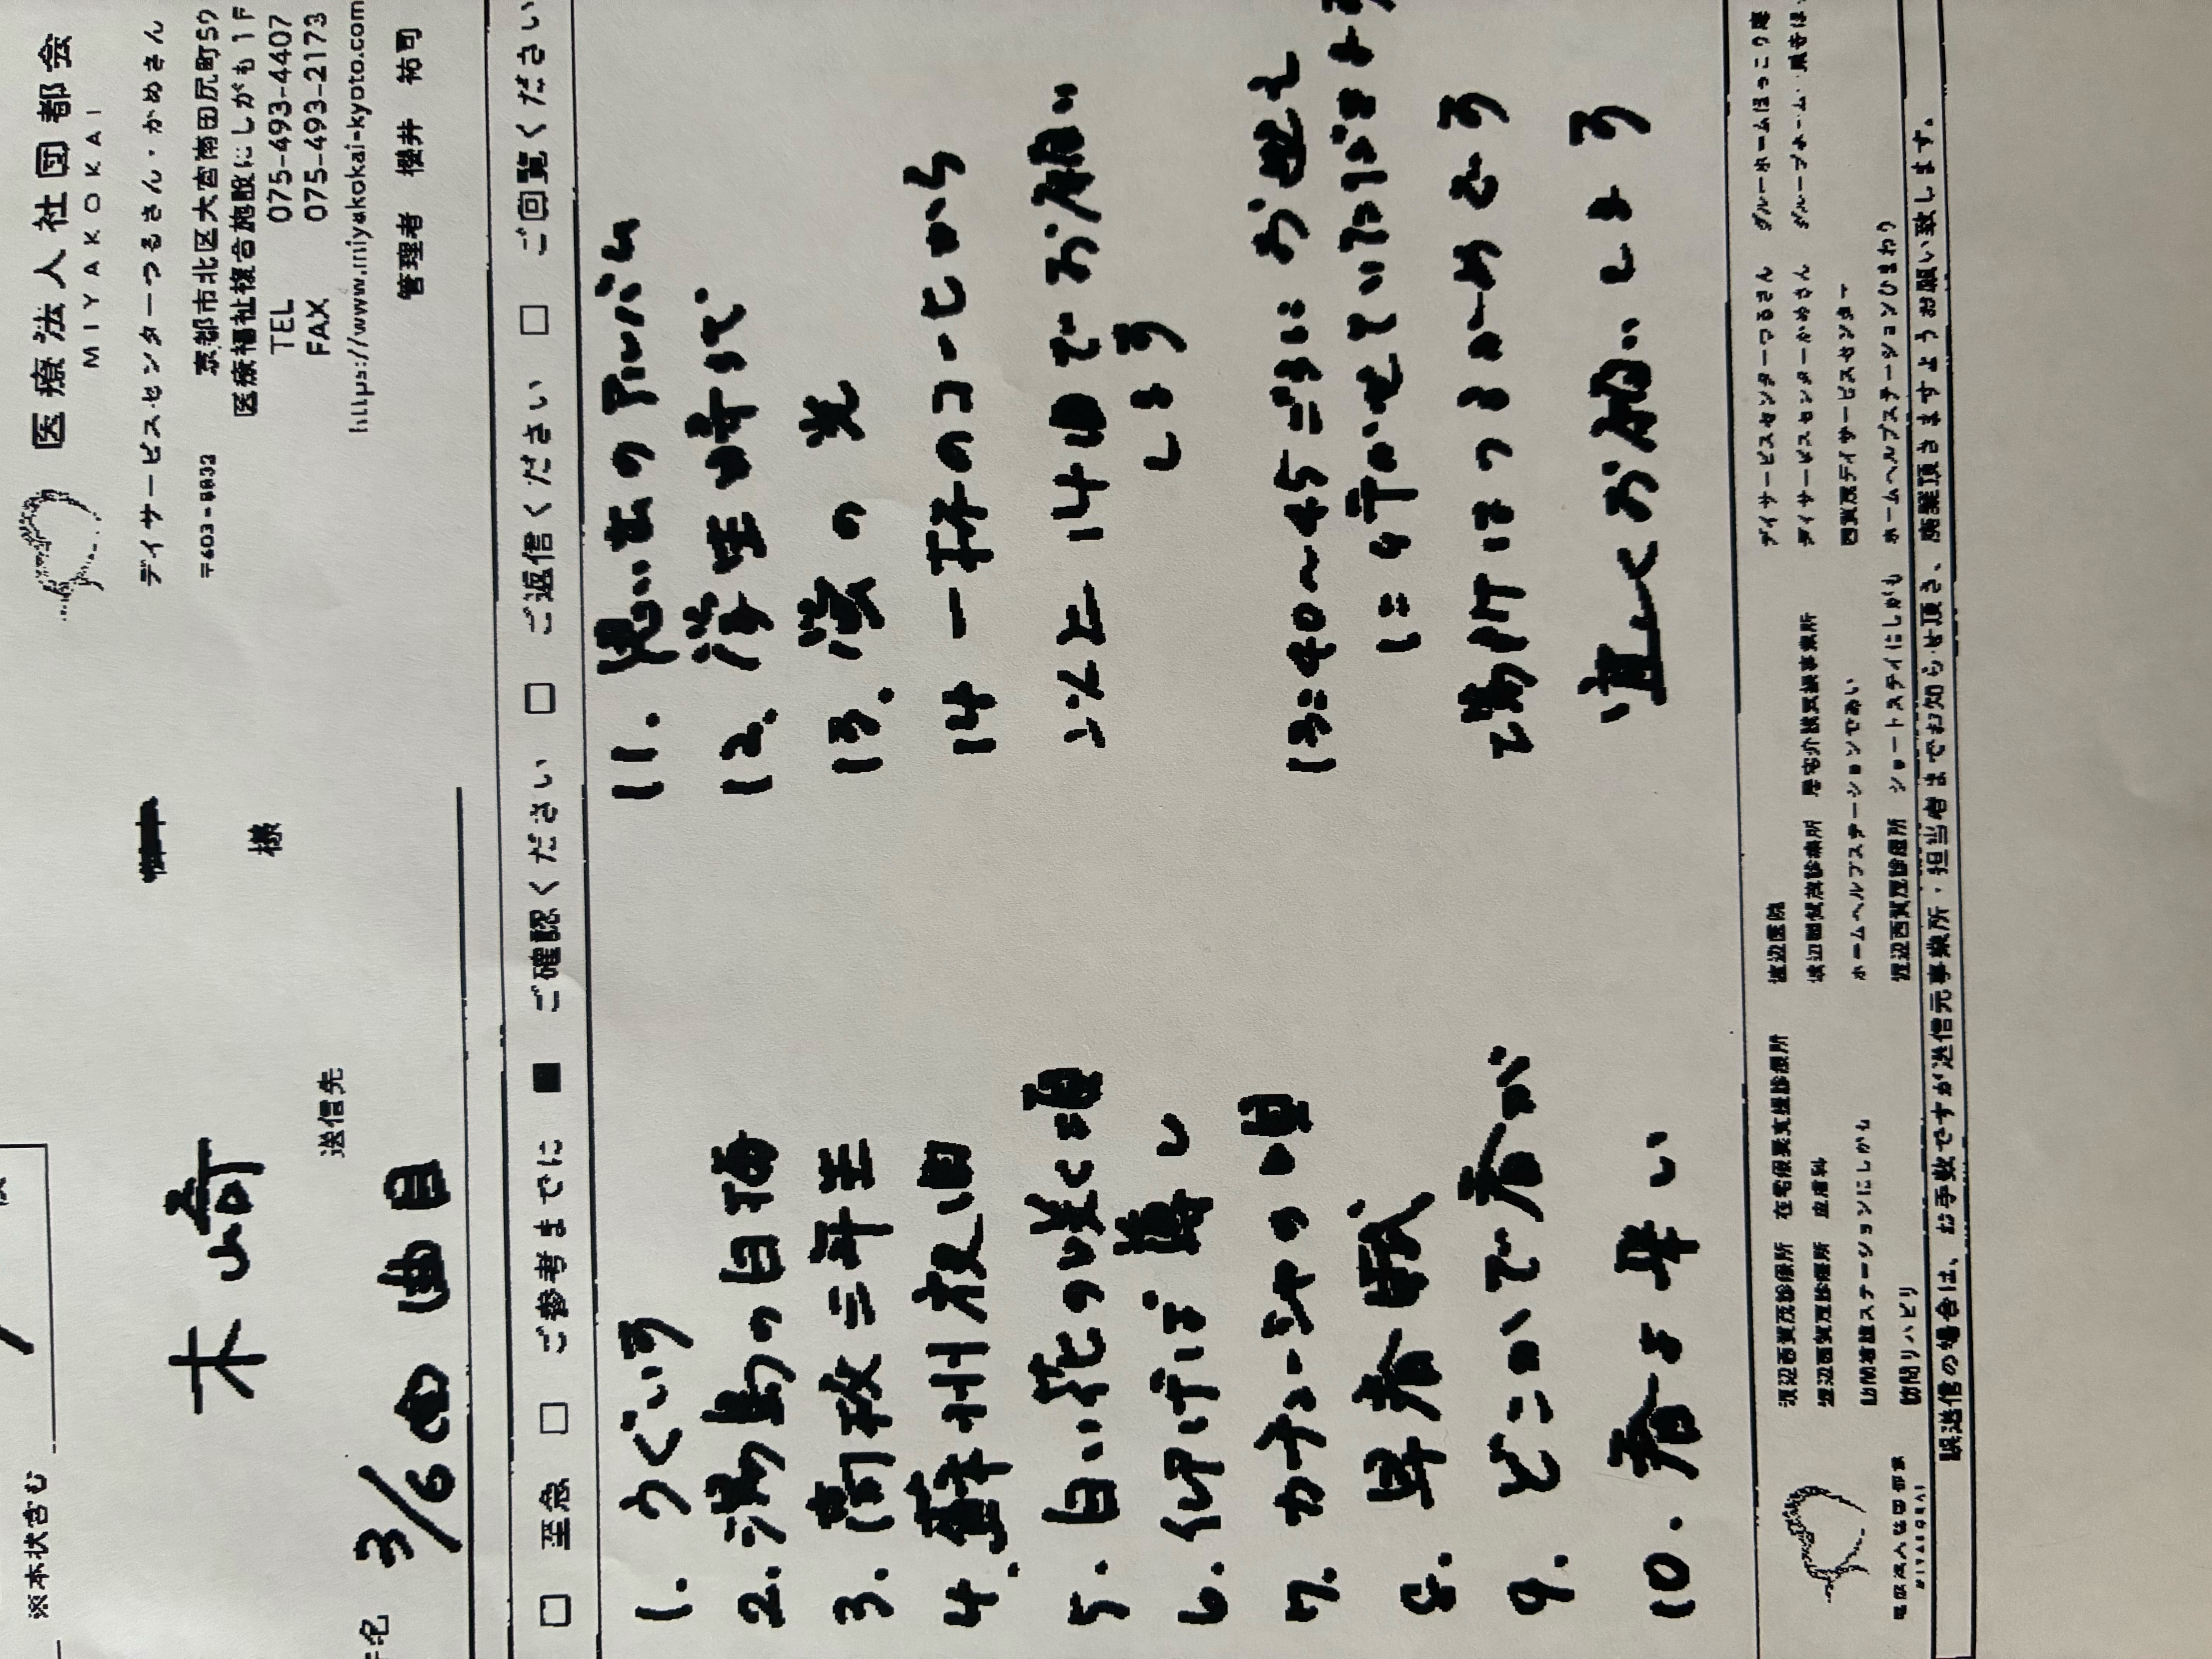 医療法人社団都会
MIYAKOKAI
デイサービスセンターつるさん・かめさん
〒603-8832
京都市北区大宮南田尻町59
医療福祉複合施設にしがも1F
TEL 075-493-4407
FAX 075-493-2173
https://www.miyakokai-kyoto.com
管理者 櫻井 祐司
※本状含む
木崎
様
送信先
件名 3/6の曲目
□ 至急 □ ご参考までに ■ ご確認ください □ ご返信ください □ ご回覧ください
1. うぐいす
2. 湯島の白梅
3. 蘭牧三年里
4. 蘇州夜曲
5. 白い花の咲く頃
6. 仰げば尊し
7. カチューシャの唄
8. 早春賦
9. どこかで春が
10. 春よ来い
11. 思い出のアルバム
12. 学生時代
13. 蛍の光
14 一杯のコーヒーから
以上14曲でお願い
します
13:40~45ごろにお迎え
に行かせていただきます
場所はつるかめです
宜しくお願いします
渡辺西賀茂診療所 在宅療養支援診療所
渡辺西賀茂診療所 皮膚科
訪問看護ステーションにしがも
訪問リハビリ
渡辺医院
ホームヘルプステーションであい
渡辺西賀茂診療所 ショートステイにしがも
デイサービスセンターつるさん
デイサービスセンターかめさん
西賀茂デイサービスセンター
ホームヘルプステーションひまわり
グループホームほっこり庵
医療法人社団都会
MIYAKOKAI
誤送信の場合は、お手数ですが送信元事業所・担当者までお知らせ頂き、廃棄頂きますようお願い致します。